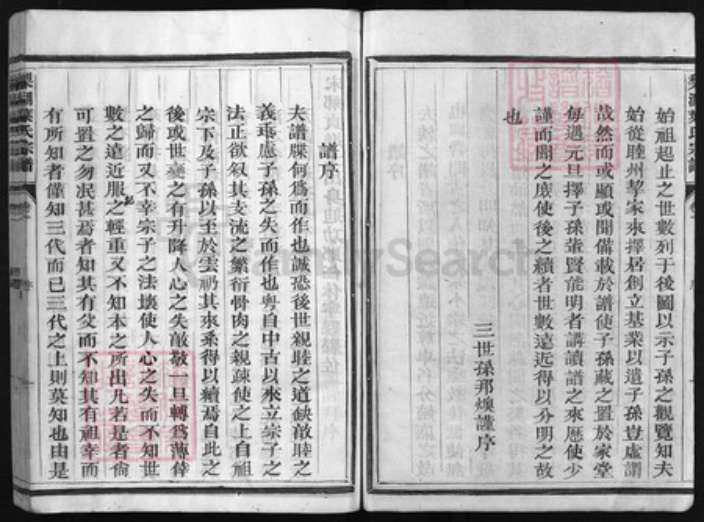 始祖起止之世數列于後圖以示子孫之觀覽知夫
始從睦州挈家來擇居創立基業以遺子孫豈虛謂
哉然而或顯或開備載於譜使子孫藏之置於家堂
每遇元旦擇子孫輩賢能明者講讀譜之來歷使少
謹而聞之庶使後之續者世數遠近得以分明之故
也
三世孫邦煥謹序
譜序
夫譜牒何爲而作也誠恐後世親睦之道缺敵睦之
義乖慮子孫之失而作也粤自中古以來立宗子之
法正欲叙其支流之繁衍骨肉之親疎使之上自祖
宗下及子孫以至於雲礽其來桑得以續焉自此之
後或世變之有升降人心之失敵一旦轉爲薄倖
之歸而又不幸宗子之法壞使人心之失而不知世
數之遠近服之輕重又不知本之所出凡若是者倘
可置之勿泯甚焉者知其有父而不知其有祖幸而
有所知者僅知三代而已三代之上則莫知也由是
FamilySearch